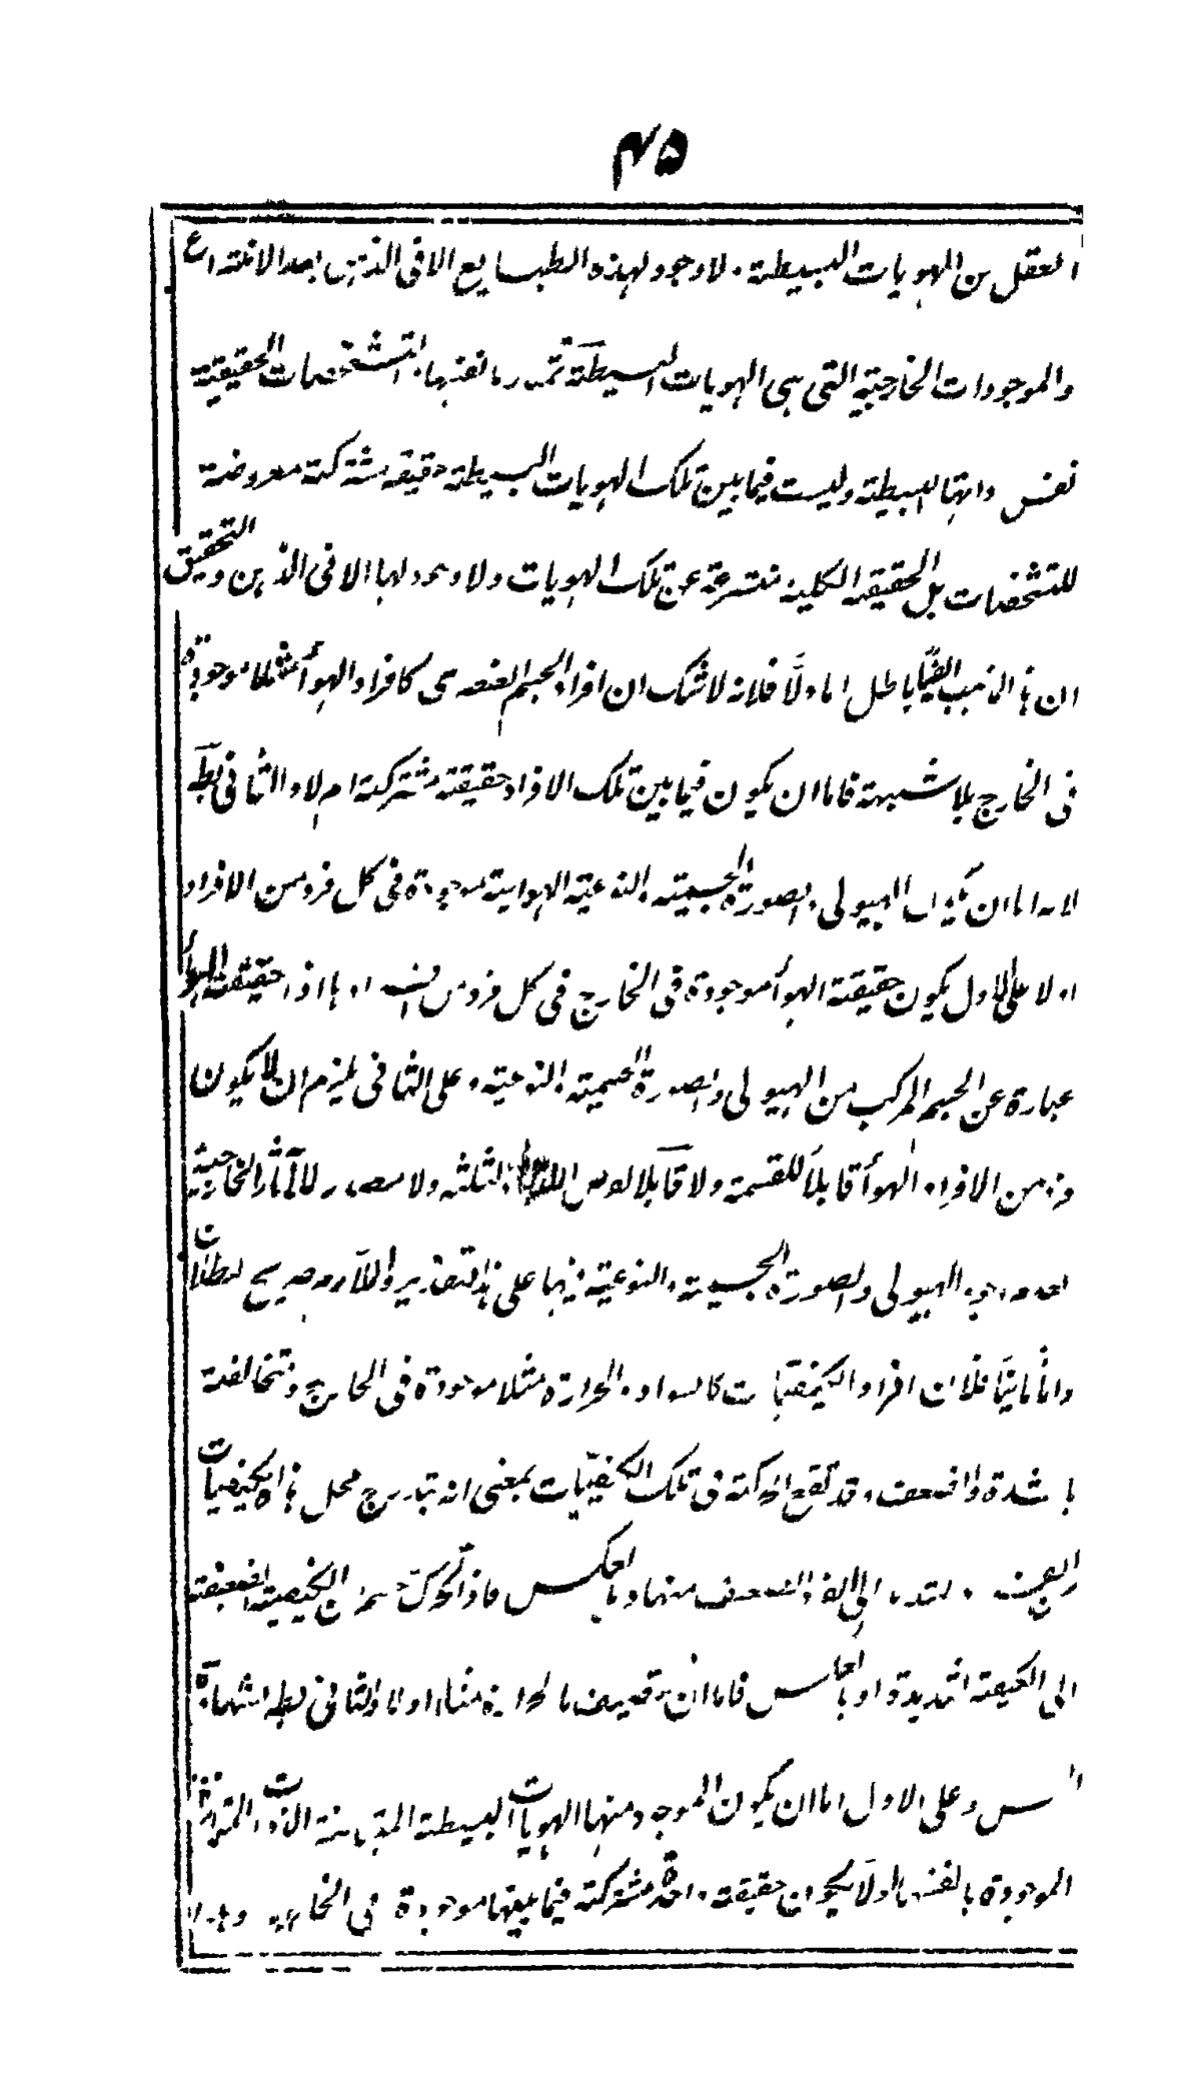 ۴۵
العقل من الهويات البسيطة ولا وجود لهذه الطبايع الا فى الذهن بعد الانتزاع
والموجودات الخارجية التى هى الهويات البسيطة بانفسها التشخصات الحقيقية
نفس ذواتها البسيطة وليست فيما بين تلك الهويات البسيطة حقيقة مشتركة معروضة
للتشخصات بل الحقيقة الكلية منتزعة عن تلك الهويات ولا وجود لها الا فى الذهن والتحقيق
ان هذا المذهب ايضًا باطل اما اولًا فلانه لا شك ان افراد الجسم العنصرى كافراد الهوأ مثلا موجودة
فى الخارج بلا شبهة فاما ان يكون فيما بين تلك الافراد حقيقة مشتركة ام لا والثانى بط
لانه اما ان يكون الهيولى والصورة الجسمية والنوعية الهوائية موجودة فى كل فرد من الافراد
او لا على الاول يكون حقيقة الهوأ موجودة فى الخارج فى كل فرد من افرادها اذ حقيقة الهوأ
عبارة عن الجسم المركب من الهيولى والصورة الجسمية والنوعية وعلى الثانى يلزم ان لا يكون
من الافراد الهوأ قابلًا للقسمة ولا قابلا الثلثة ولا مصدر للآثار الخارجية
لعدم وجود الهيولى والصورة الجسمية والنوعية فيها على هذا التقدير واللازم صريح البطلان
واما ثانيًا فلان افراد الكيفيات كالسواد والحرارة مثلا موجودة فى الخارج ومتخالفة
بالشدة والضعف وقد تقع الحركة فى تلك الكيفيات بمعنى انه يتدرج محل هذه الكيفيات
الى الضعف منها وبالعكس فاذا تحرك من الكيفية الضعيفة
الى الكيفية الشديدة او بالعكس فاما ان او لا والثانى بط بشهادة
الحس وعلى الاول اما ان يكون الموجود منها الهويات البسيطة المتباينة الذوات
الموجودة بانفسها او لا يكون حقيقة واحدة مشتركة فيما بينها موجودة فى الخارج